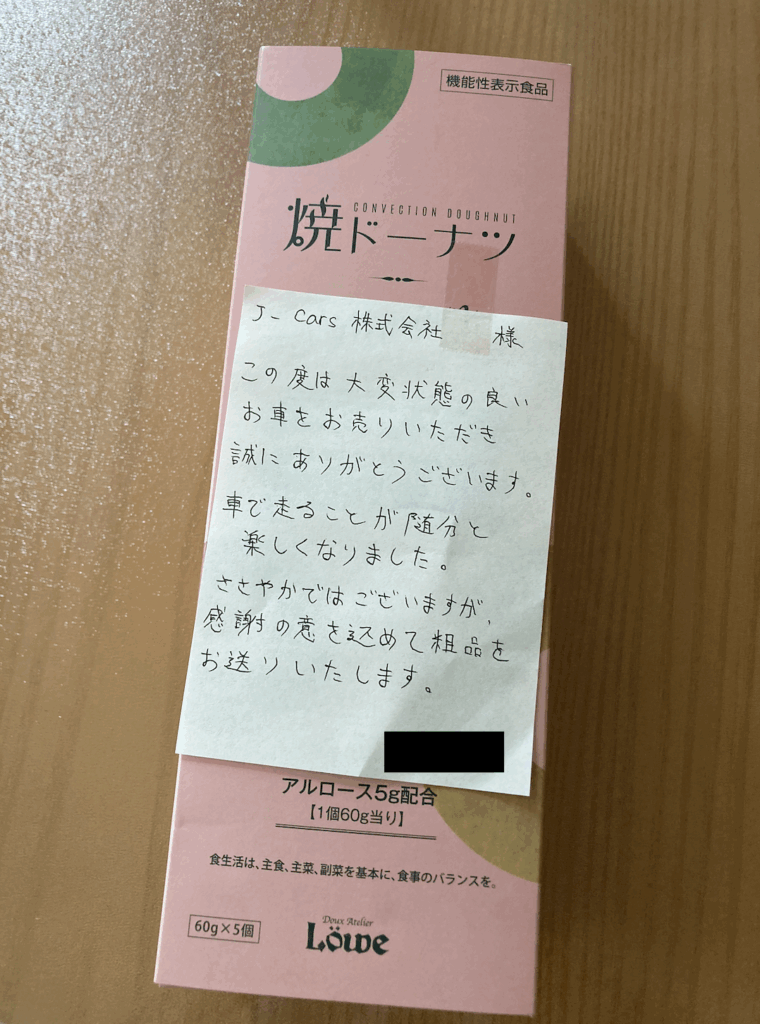 機能性表示食品
CONVECTION DOUGHNUT
焼ドーナツ
J-Cars 株式会社 様
この度は大変状態の良い
お車をお売りいただき
誠にありがとうございます。
車で走ることが随分と
楽しくなりました。
ささやかではございますが、
感謝の意を込めて粗品を
お送りいたします。
アルロース5g配合
【1個60g当り】
食生活は、主食、主菜、副菜を基本に、食事のバランスを。
60g×5個
Doux Atelier
Löwe